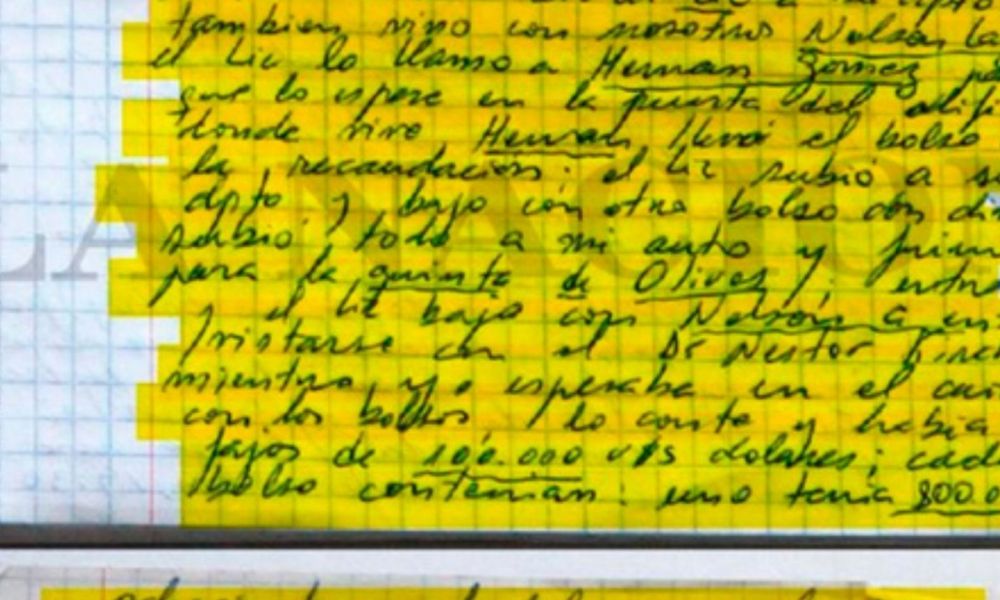 tambien vino con nosotros Nelson La
el Lic lo llamo a Hernan Gomez
que lo espere en la puerta del edifi
donde vive Hernan, llevó el bolso
la recaudacion; el Lic subió a s
dpto y bajo con otro bolso con di
subió todo a mi auto y fuim
para la quinta de Olivos,
y el Lic bajo con Nelson a en
trevistarse con el Dr Nestor
mientras yo esperaba en el au
con los bolsos, lo conte y habia
fajos de 100.000 U$S dolares; cad
bolso contenian: uno tenia 800.0
LA NACION